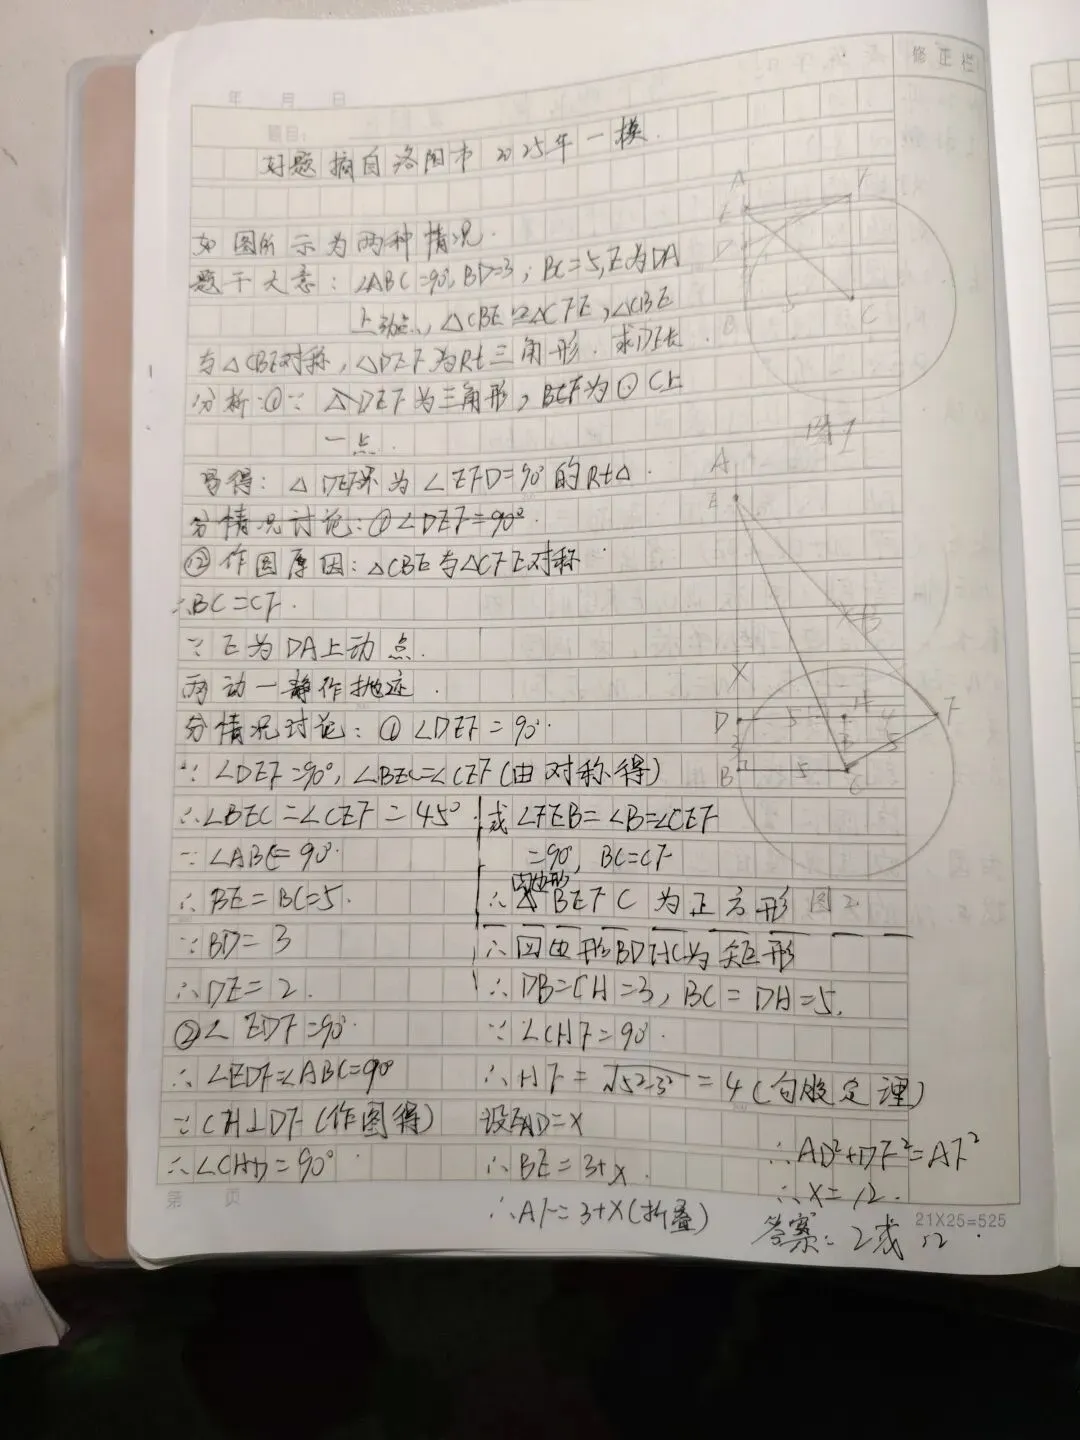 修正栏
年 月 日
题目:
好题摘自洛阳市2025年一模.
如图所示为两种情况.
题干大意: ∠ABC=90°, BD=3, BC=5, E为DA
上动点, △CBE≌△CFE, △CBE
与△CBE对称, △DEF为Rt三角形. 求DE长.
分析:①∵ △DEF为三角形, BEF为⊙C上
一点.
易得: △DEF不为∠EFD=90°的Rt△.
分情况讨论:①∠DEF=90°.
② 作图原因: △CBE与△CFE对称
∴BC=CF.
∵E为DA上动点.
两动一静作轨迹.
分情况讨论: ① ∠DEF=90°.
∵∠DEF=90°, ∠BEC=∠CEF(由对称得)
∴∠BEC=∠CEF=45°
∵∠ABC=90°
∴BE=BC=5.
∵BD=3
∴DE=2.
②∠EDF=90°
∴∠EDF=∠ABC=90°
∵CH⊥DF(作图得)
∴∠CHD=90°
或∠FEB=∠B=∠CEF
=90°, BC=CF
∴四边形BEFC为正方形
∴四边形BDHC为矩形
∴DB=CH=3, BC=DH=5.
∵∠CHF=90°.
∴HF=√5²-3²=4(勾股定理)
设AD=x
∴BE=3+x.
∴AF=3+x(折叠)
∴AD²+DF²=AF²
∴x=12.
答案: 2或12.
A
E
F
D
5
B
C
图1
A
E
x+3
x
D
5
H
4
F
3
3
5
B
5
C
图2
第 页
21X25=525